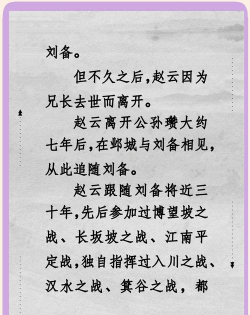 刘备。
但不久之后,赵云因为
兄长去世而离开。
赵云离开公孙瓒大约
七年后,在邺城与刘备相见,
从此追随刘备。
赵云跟随刘备将近三
十年,先后参加过博望坡之
战、长坂坡之战、江南平
定战,独自指挥过入川之战、
汉水之战、箕谷之战,都